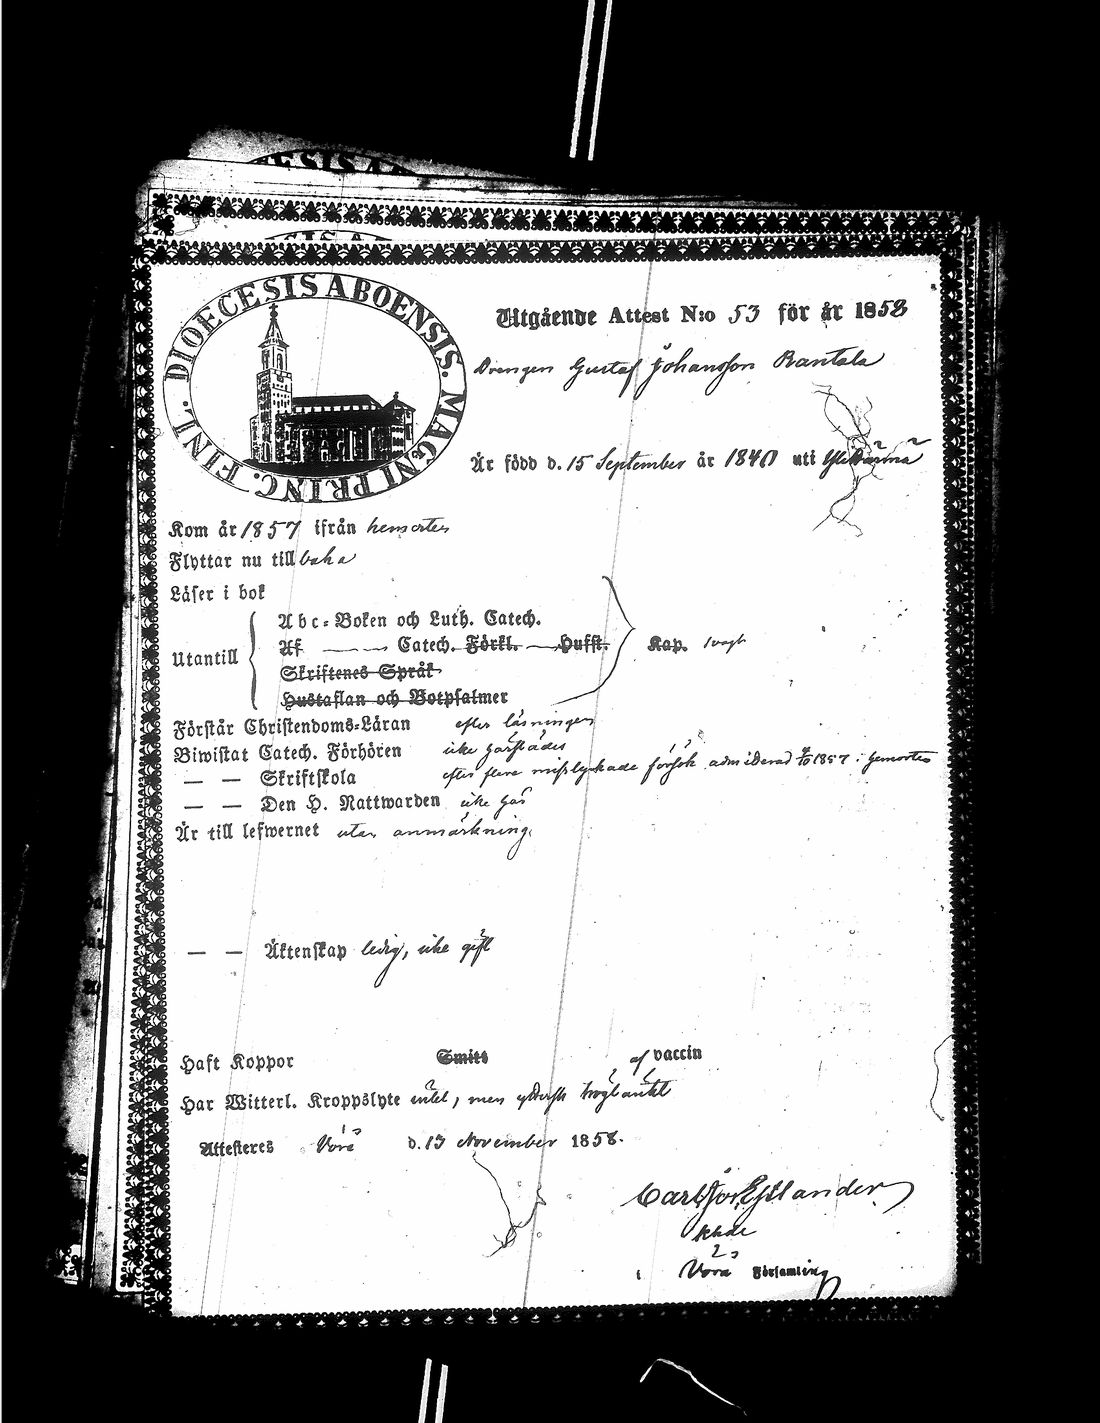 DIOECESIS ABOENSIS. MAGNI PRINC. FINL.
Utgående Attest N:o 53 för år 1858
Drengen Gustaf Johansson Rantala
Är född d. 15 September år 1840 uti
Kom år 1857 ifrån hemorten
Flyttar nu tillbaka
Läser i bok
Utantill
Abc-Boken och Luth. Catech.
Af — — Catech. Förkl. — Hufst. Kap. svagt
Skriftenes Språk
Hustaflan och Botpsalmer
Förstår Christendoms-Läran efter läsningen
Biwistat Catech. Förhören icke härstädes
— — Skriftskola efter flere misslyckade försök admitterad 1857 i hemorten
— — Den H. Nattwarden icke här
Är till lefwernet utan anmärkning.
— — Äktenskap ledig, icke gift
Haft Koppor Smitt af vaccin
Har Witterl. Kroppslyte intet, men ytterst trögtänkt
Attesteres Vörå d. 13 November 1858.
Carl Estlander
Vörå Församling